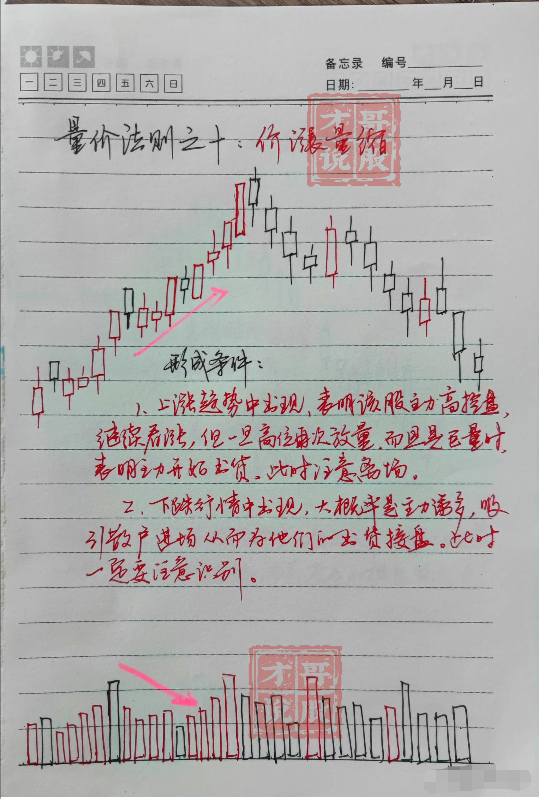 备忘录 编号
一 二 三 四 五 六 日
日期: 年 月 日
量价法则之十:价涨量缩
才哥说股
形成条件:
1、上涨趋势中出现,表明该股主力高控盘,
继续看涨,但一旦高位再次放量,而且是巨量时,
表明主力开始出货。此时注意离场。
2、下跌行情中出现,大概率是主力诱多,吸
引散户进场从而为他们的出货接盘。此时
一定要注意识别。
才哥说股